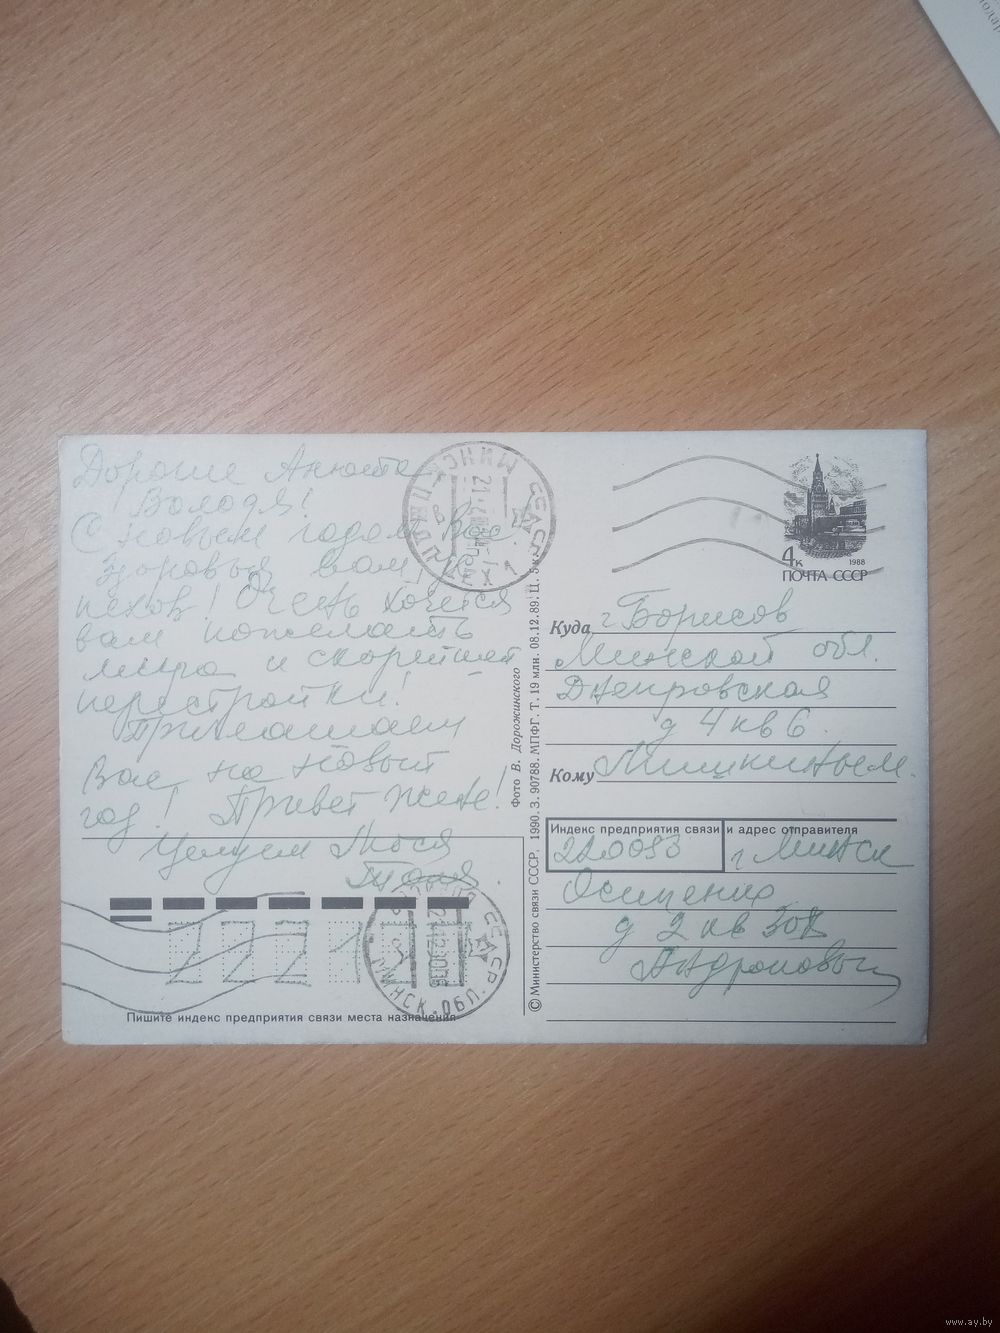 Дорогие Анюта
Володя!
С новым годом Вас
здоровья вам,
пехов! Очень хочется
вам пожелать
мира и скорейшей
перестройки!
Приглашаем
Вас на Новый
год! Привет Жене!
Целуем Тося
Толя
МИНСК
4к
1988
ПОЧТА СССР
Куда г Борисов
Минской обл.
Днепровская
д 4 кв 6
Кому Мишкиным.
Индекс предприятия связи и адрес отправителя
220093 г Минск
Осипенко
д 2 кв
222120
МИНСК. ОБЛ.
Пишите индекс предприятия связи места назначения
Фото В. Дорожинского
© Министерство связи СССР, 1990. З. 90788. МПФГ. Т. 19 млн. 08.12.89. Ц. 5 к.
www.ay.by